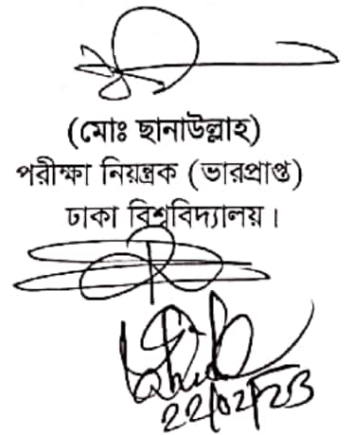 (মোঃ ছানাউল্লাহ)
পরীক্ষা নিয়ন্ত্রক (ভারপ্রাপ্ত)
ঢাকা বিশ্ববিদ্যালয়।
22/02/23